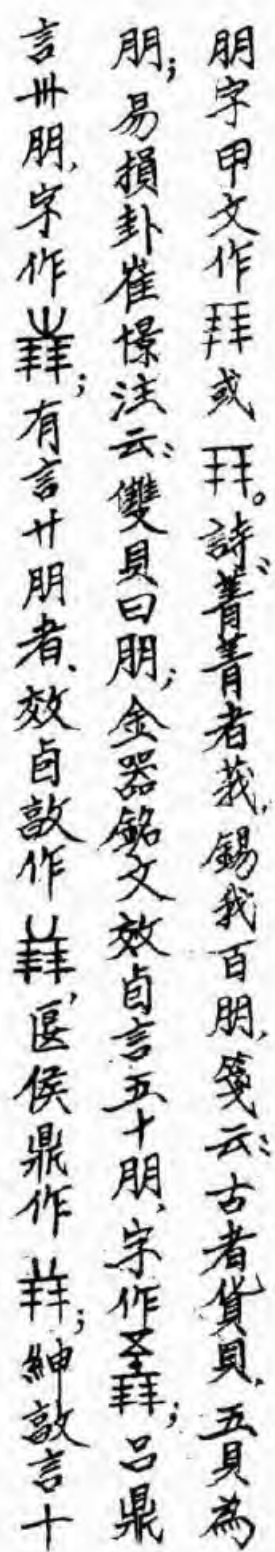 朋字甲文作或。詩:菁菁者莪,錫我百朋,箋云:古者貨貝,五貝為
朋;易損卦崔憬注云:雙貝曰朋;金器銘文效卣言五十朋,字作;呂鼎
言卅朋,字作;有言廿朋者、效卣㪤作,匽侯鼎作;紳㪤言十